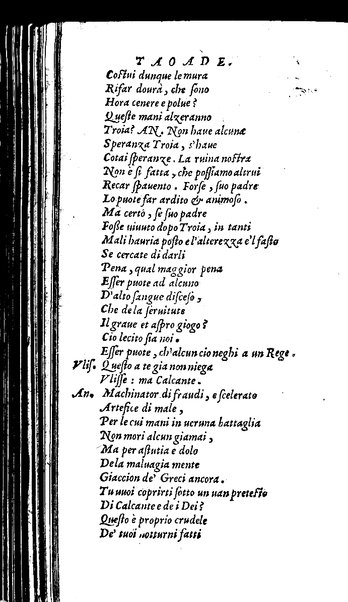 TAOADE.
Costui dunque le mura
Rifar dourà, che sono
Hora cenere e polue?
Queste mani alzeranno
Troia? AN. Non haue alcuna
Speranza Troia, s'haue
Cotai speranze. La ruina nostra
Non è si fatta, che possiamo altrui
Recar spauento. Forse, suo padre
Lo puote far ardito & animoso.
Ma certò, se suo padre
Fosse uiuuto dopo Troia, in tanti
Mali hauria posto e l'alterezza e'l fasto
Se cercate di darli
Pena, qual maggior pena
Esser puote ad alcuno
D'alto sangue disceso,
Che de la seruitute
Il graue et aspro giogo?
Cio lecito sia noi.
Esser puote, ch'alcun cio neghi a un Rege.
Vliss. Questo a te gia non niega
Vlisse: ma Calcante.
An. Machinator di fraudi, e scelerato
Artefice di male,
Per le cui mani in ueruna battaglia
Non mori alcun giamai,
Ma per astutia e dolo
De la maluagia mente
Giaccion de' Greci ancora.
Tu uuoi coprirti sotto un uan pretesto
Di Calcante e de i Dei?
Questo è proprio crudele
De' tuoi notturni fatti